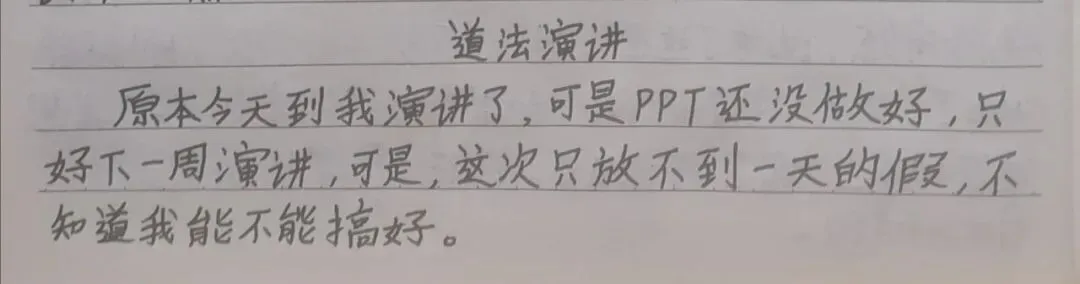 道法演讲
原本今天到我演讲了,可是PPT还没做好,只
好下一周演讲,可是,这次只放不到一天的假,不
知道我能不能搞好。